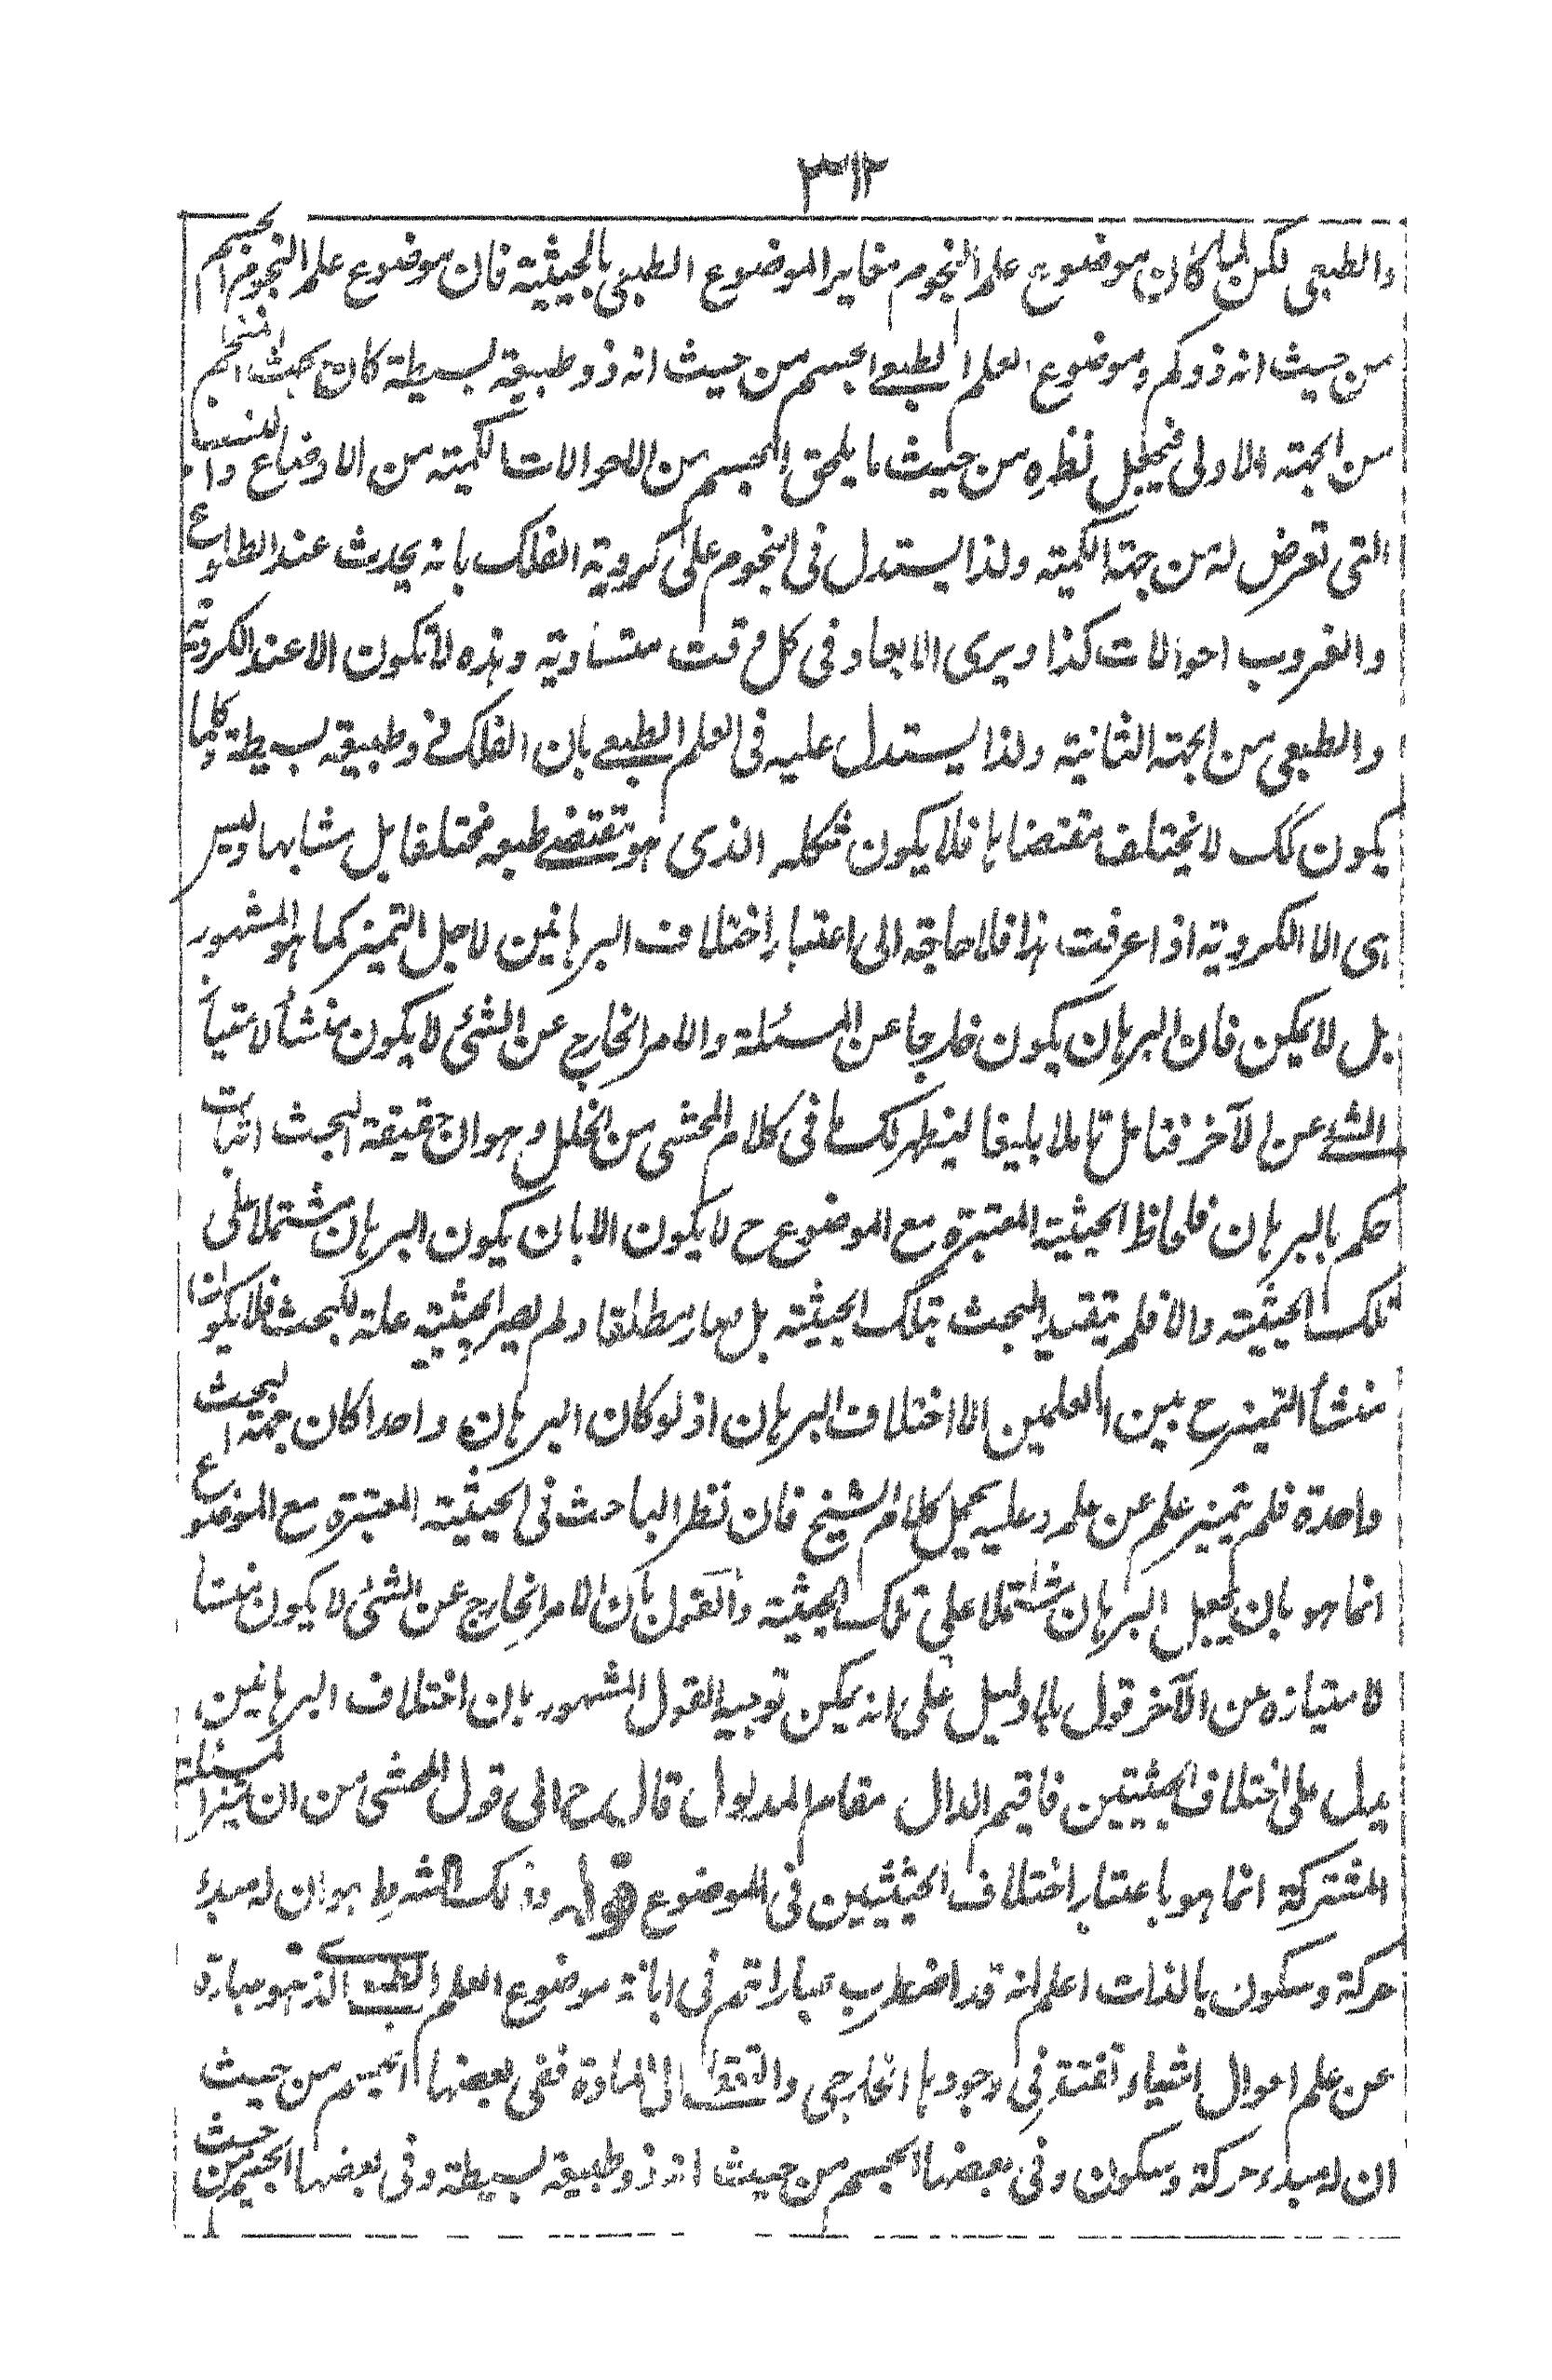 ٣١٢
والطبعى لكن لما كان موضوع علم النجوم مغايرا لموضوع الطبعى بالحيثية فان موضوع علم النجوم الجسم
من حيث انه ذو كم وموضوع العلم الطبعى الجسم من حيث انه ذو طبيعة بسيطة كان بحث المنجم
من الجهة الاولى فيجعل نظره من حيث ما يلحق الجسم من الاحوالات الكمية من الاوضاع والنسب
التى تعرض له من جهة الكمية ولذا يستدل فى النجوم على كروية الفلك بانه يحدث عند الطلوع
والغروب احوالات كذا ويرى الابعاد فى كل وقت متساوية وهذه لا تكون الا عند الكروية
والطبعى من الجهة الثانية ولذا يستدل عليه فى العلم الطبعى بان الفلك ذو طبيعة بسيطة وكلما
يكون كك لا يختلف مقتضاها فلا يكون شكله الذى هو مقتضى طبعه مختلفا بل مشابها وليس
هى الا الكروية اذا عرفت هذا فلا حاجة الى اعتبار اختلاف البرهانين لاجل التميز كما هو المشهور
بل لا يمكن فان البرهان يكون خارجا عن المسئلة والامر الخارج عن الشئ لا يكون منشأ لامتياز
الشئ عن الآخر فتامل تاملا بليغا ليظهر لك ما فى كلام المحشى من الخلل وهو ان حقيقة البحث اثبات
حكم بالبرهان فلحاظ الحيثية المعتبرة مع الموضوع ح لا يكون الا بان يكون البرهان مشتملا على
تلك الحيثية والا فلم يتقيد البحث بتلك الحيثية بل صار مطلقا ولم يصر الحيثية علة للبحث فلا يكون
منشأ التميز ح بين العلمين الا اختلاف البرهان اذ لو كان البرهان واحدا كان جهة البحث
واحدة فلم يتميز علم عن علم وعليه يحمل كلام الشيخ فان نظر الباحث فى الحيثية المعتبرة مع الموضوع
انما هو بان يجعل البرهان مشتملا على تلك الحيثية والقول بان الامر الخارج عن الشئ لا يكون منشأ
لامتيازه عن الآخر قول بلا دليل على انه يمكن توجيه القول المشهور بان اختلاف البرهانين
يدل على اختلاف الحيثيتين فاقيم الدال مقام المدلول قال رح الى قول المحشى من ان تميز المسئلة
المشتركة انما هو باعتبار اختلاف الحيثيتين فى الموضوع قوله وذلك هو ان له مبدء
حركة وسكون بالذات اعلم انه قد اضطرب عباراتهم فى ابانة موضوع العلم الطبعى الذى هو عبارة
عن علم احوال اشياء مفتقرة فى وجودها الخارجى والتعقل الى المادة ففى بعضها الجسم من حيث
ان له مبدء حركة وسكون وفى بعضها الجسم من حيث انه ذو طبيعة بسيطة وفى بعضها الجسم من حيث